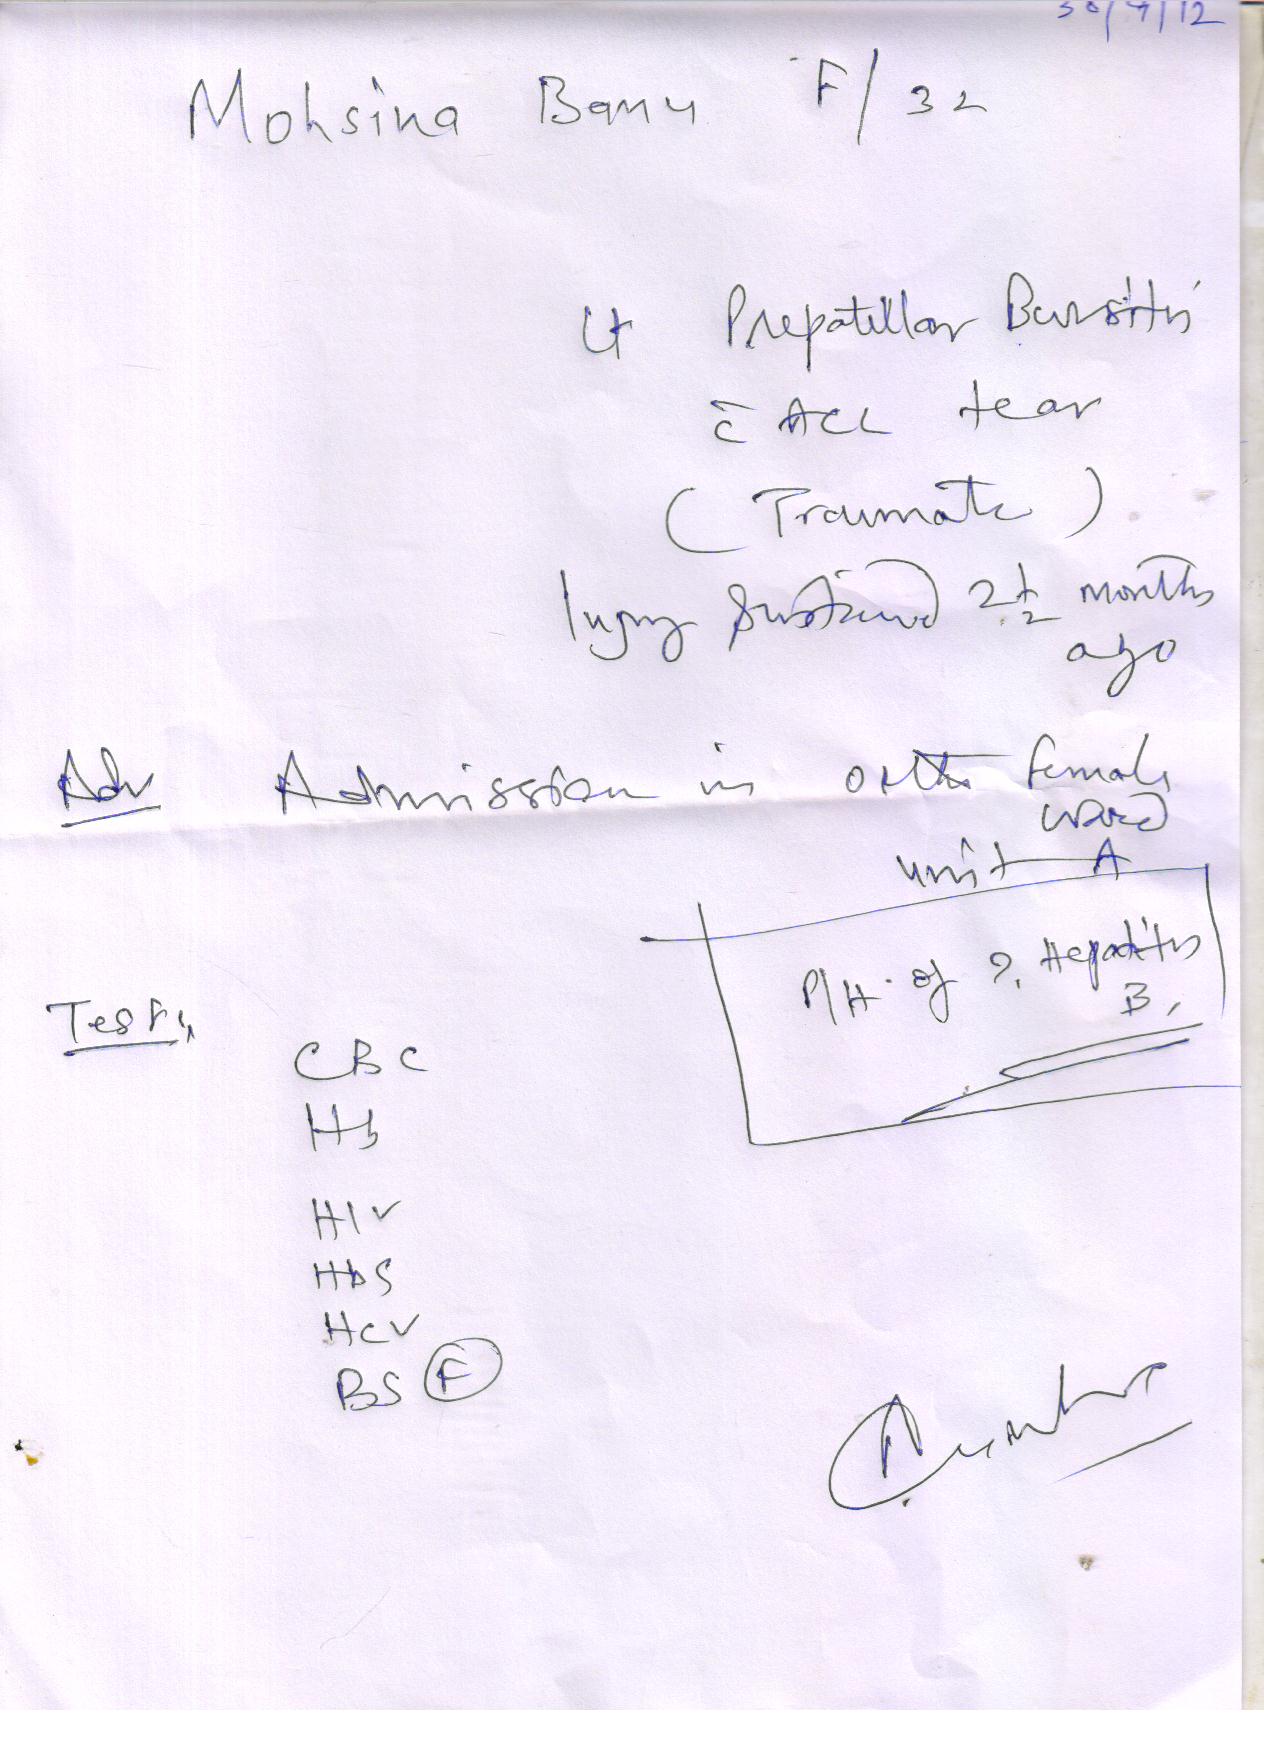 30/7/12
Mohsina Banu F/32
Lt Prepatellar Bursitis
c̄ ACL tear
(Traumatic)
Injury Sustained 2 1/2 months
ago
Adv Admission in ortho female
ward
unit A
P/H. of ?. Hepatitis
B.
Tests,
CBC
Hb
HIV
HbS
HCV
BS (F)